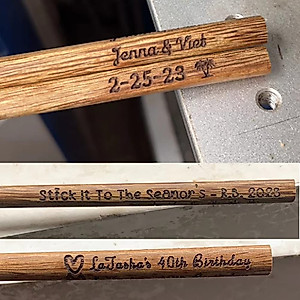 Jenna & Viet
2-25-23
Stick It To The Seamon's - R.S. 2023
LaTasha's 40th Birthday